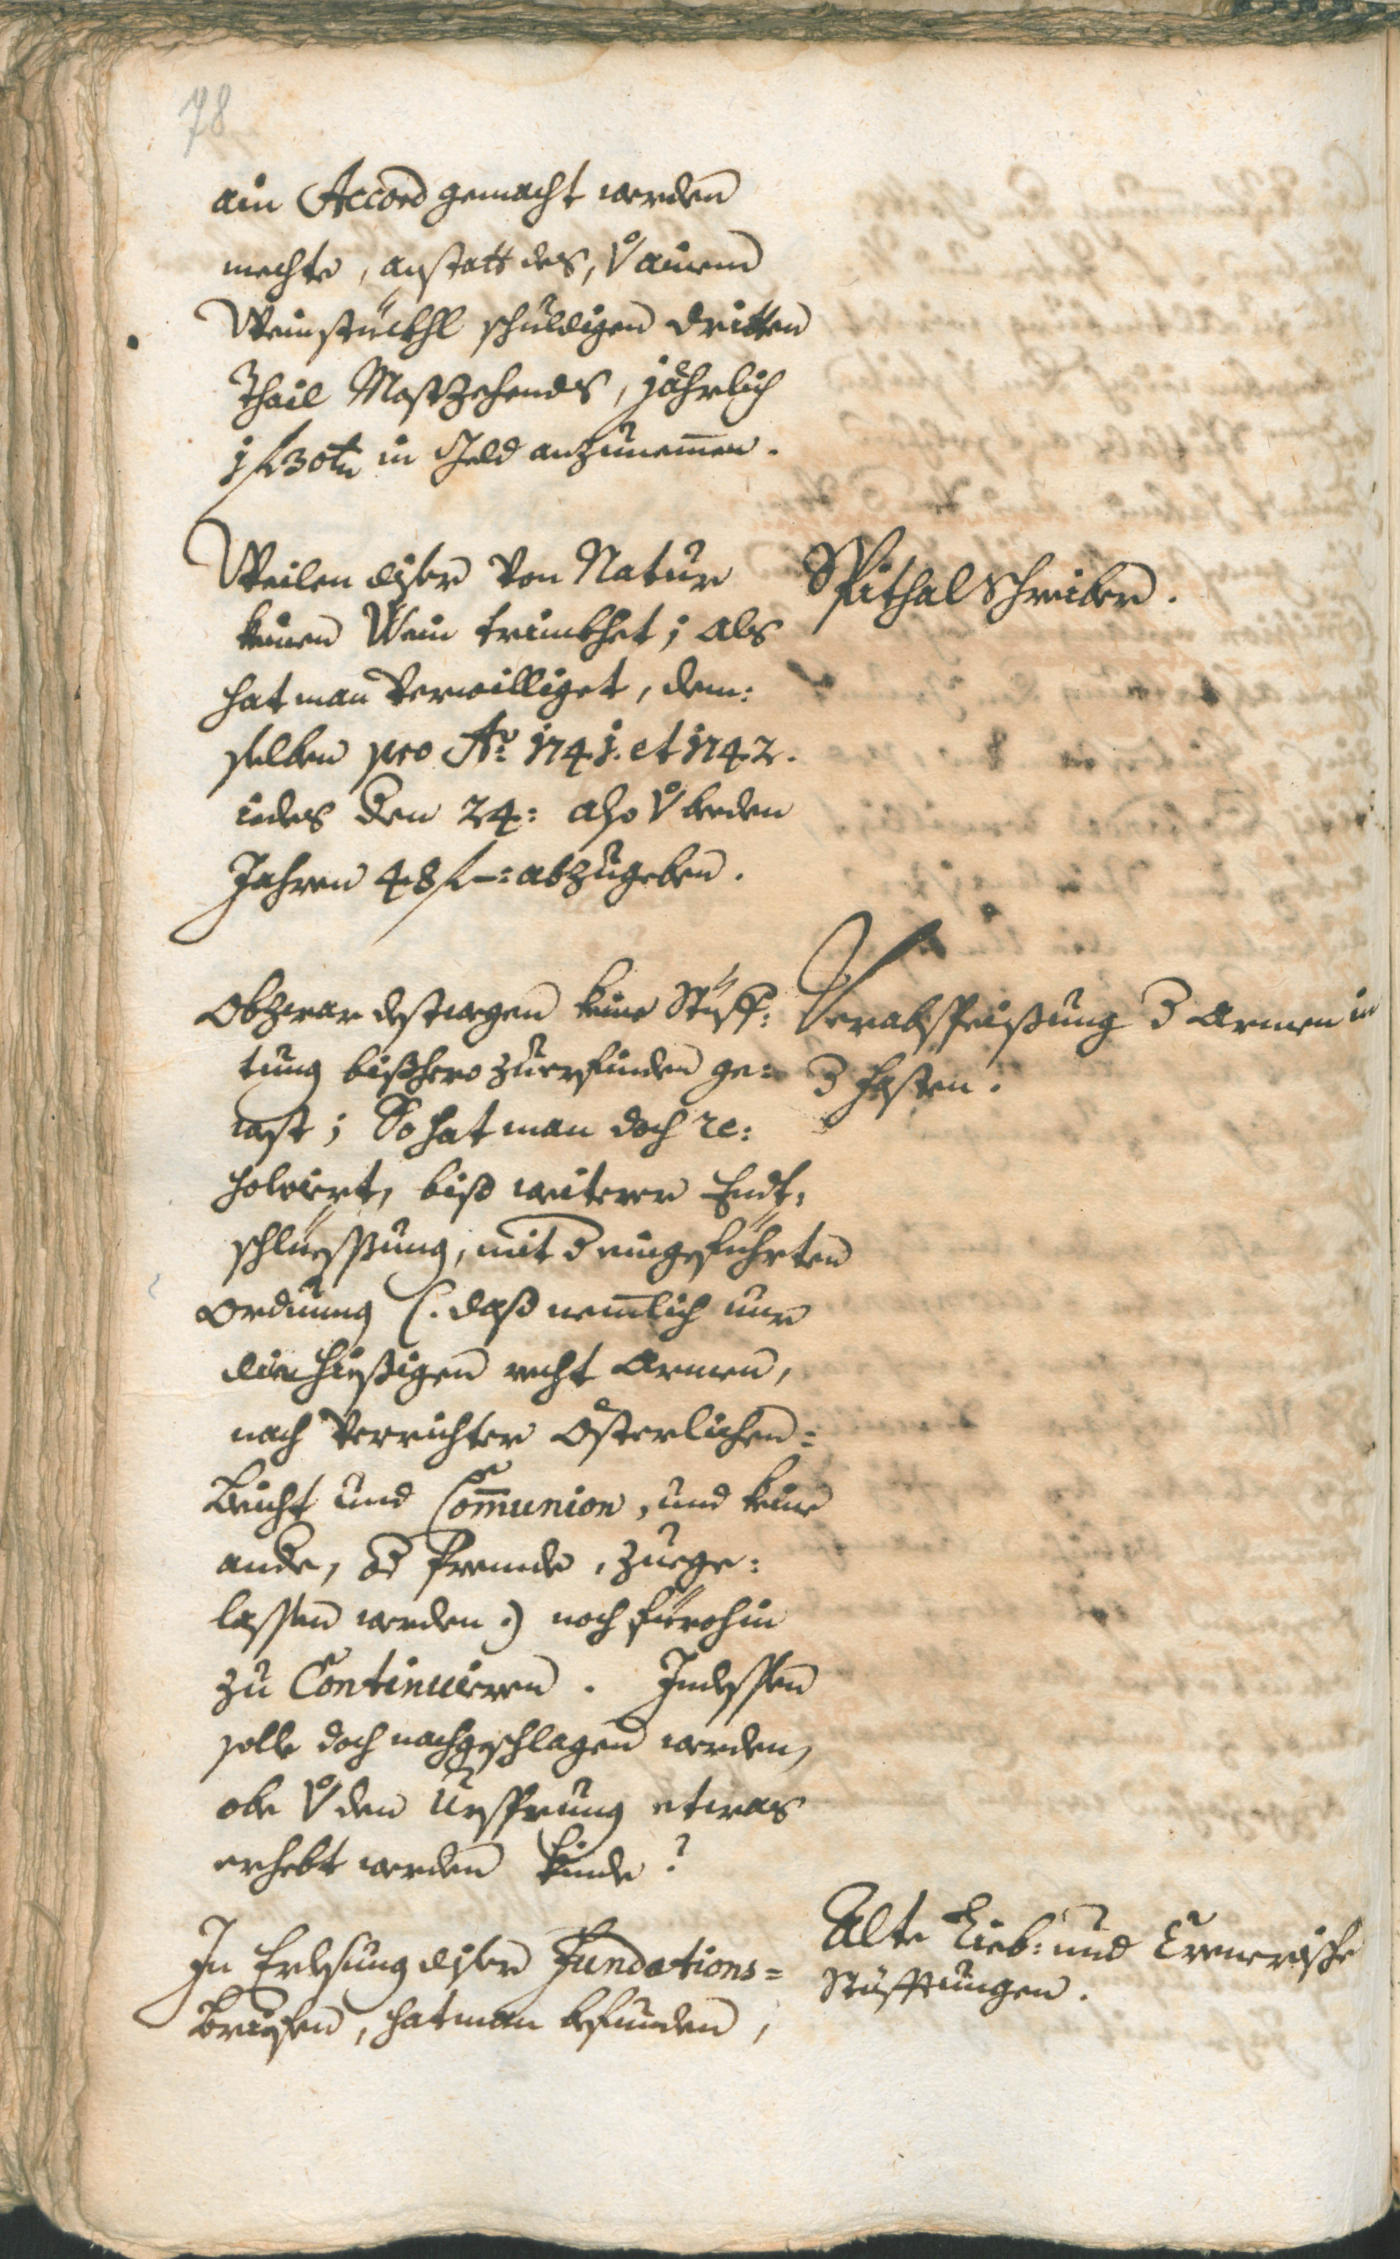 78
ain Accord gemacht werden
mechte, anstatt des, von ainem
Weinstückhl schuldigen dritten
Thail Mostzehends, jährlich
1 f 30 kr in Geld anzunemen.
Weilen diser von Natur
keinen Wein trinckhet; als
hat man verwilliget, dem:
selben pro Ao 1741. et 1742.
iedes den 24: also von beeden
Jahren 48 f –: abzugeben.
Spithalschreiber.
Obzwar destwegen keine Stüff:
tung bißhero zuerfinden ge:
west; So hat man doch re:
solviert, biß weiterer Endt:
schlüessung, mit der eingeführten
Ordnung (: daß nemlich nur
die hießigen recht Armen,
nach verrichter Österlichen=
Beicht und Communion, und keine
andere, oder fremde, zuege:
lassen werden :) noch fürohin
zu Continuieren. Indessen
solle doch nachgeschlagen werden,
obe von den Ursprung etwas
erhebt werden künde?
Verabspeisung der Armen in
der Fasten.
In Erlesung diser Fundations=
Briefen, hat man befunden,
Alte Lieb: und
Stüfftungen.